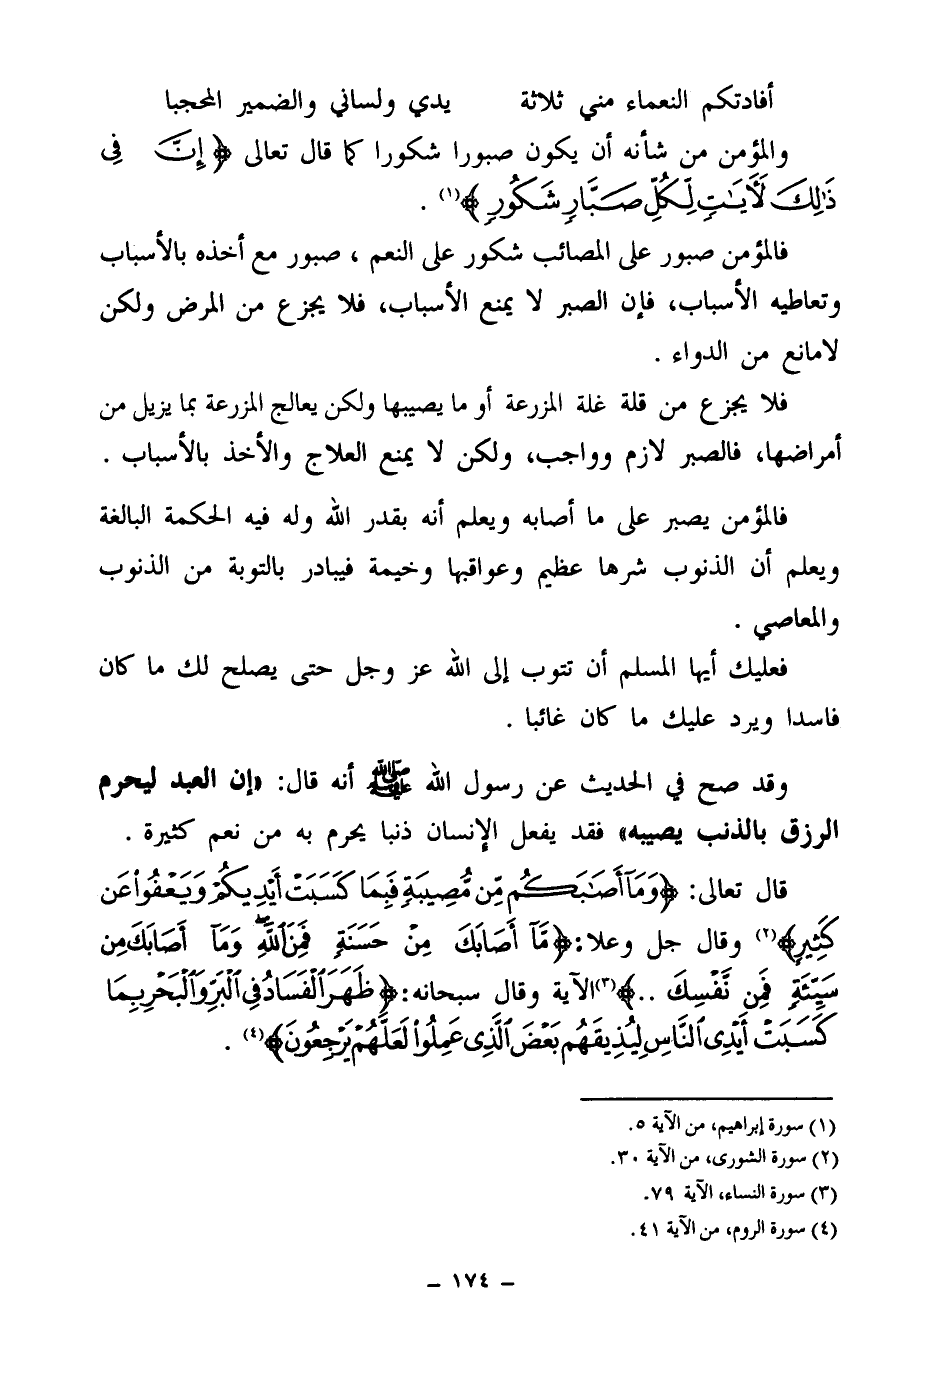 أفادتكم النعماء مني ثلاثة يدي ولساني والضمير المحجبا
والمؤمن من شأنه أن يكون صبورا شكورا كما قال تعالى ﴿إِنَّ فِي
ذَٰلِكَ لَآيَاتٍ لِّكُلِّ صَبَّارٍ شَكُورٍ﴾(١) .
فالمؤمن صبور على المصائب شكور على النعم ، صبور مع أخذه بالأسباب
وتعاطيه الأسباب، فإن الصبر لا يمنع الأسباب، فلا يجزع من المرض ولكن
لامانع من الدواء .
فلا يجزع من قلة غلة المزرعة أو ما يصيبها ولكن يعالج المزرعة بما يزيل من
أمراضها، فالصبر لازم وواجب، ولكن لا يمنع العلاج والأخذ بالأسباب .
فالمؤمن يصبر على ما أصابه ويعلم أنه بقدر الله وله فيه الحكمة البالغة
ويعلم أن الذنوب شرها عظيم وعواقبها وخيمة فيبادر بالتوبة من الذنوب
والمعاصي .
فعليك أيها المسلم أن تتوب إلى الله عز وجل حتى يصلح لك ما كان
فاسدا ويرد عليك ما كان غائبا .
وقد صح في الحديث عن رسول الله ﷺ أنه قال: «إن العبد ليحرم
الرزق بالذنب يصيبه» فقد يفعل الإنسان ذنبا يحرم به من نعم كثيرة .
قال تعالى: ﴿وَمَآ أَصَٰبَكُم مِّن مُّصِيبَةٍ فَبِمَا كَسَبَتْ أَيْدِيكُمْ وَيَعْفُوا۟ عَن
كَثِيرٍ﴾(٢) وقال جل وعلا: ﴿مَّآ أَصَابَكَ مِنْ حَسَنَةٍ فَمِنَ ٱللَّهِ ۖ وَمَآ أَصَابَكَ مِن
سَيِّئَةٍ فَمِن نَّفْسِكَ ..﴾(٣) الآية وقال سبحانه: ﴿ظَهَرَ ٱلْفَسَادُ فِي ٱلْبَرِّ وَٱلْبَحْرِ بِمَا
كَسَبَتْ أَيْدِي ٱلنَّاسِ لِيُذِيقَهُم بَعْضَ ٱلَّذِي عَمِلُوا۟ لَعَلَّهُمْ يَرْجِعُونَ﴾(٤) .
(١) سورة إبراهيم، من الآية ٥.
(٢) سورة الشورى، من الآية ٣٠.
(٣) سورة النساء، الآية ٧٩.
(٤) سورة الروم، من الآية ٤١.
– ١٧٤ –